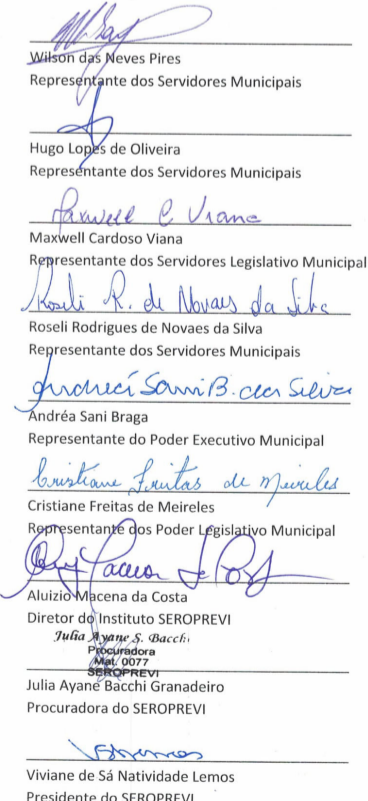 Wilson das Neves Pires
Representante dos Servidores Municipais
Hugo Lopes de Oliveira
Representante dos Servidores Municipais
Maxwell C Viana
Maxwell Cardoso Viana
Representante dos Servidores Legislativo Municipal
Roseli R. de Novaes da Silva
Roseli Rodrigues de Novaes da Silva
Representante dos Servidores Municipais
Andréa Sani B. da Silva
Andréa Sani Braga
Representante do Poder Executivo Municipal
Cristiane Freitas de Meireles
Cristiane Freitas de Meireles
Representante dos Poder Legislativo Municipal
Aluizio Macena da Costa
Diretor do Instituto SEROPREVI
Julia Ayane S. Bacchi
Procuradora
Mat. 0077
SEROPREVI
Julia Ayane Bacchi Granadeiro
Procuradora do SEROPREVI
Viviane de Sá Natividade Lemos
Presidente do SEROPREVI